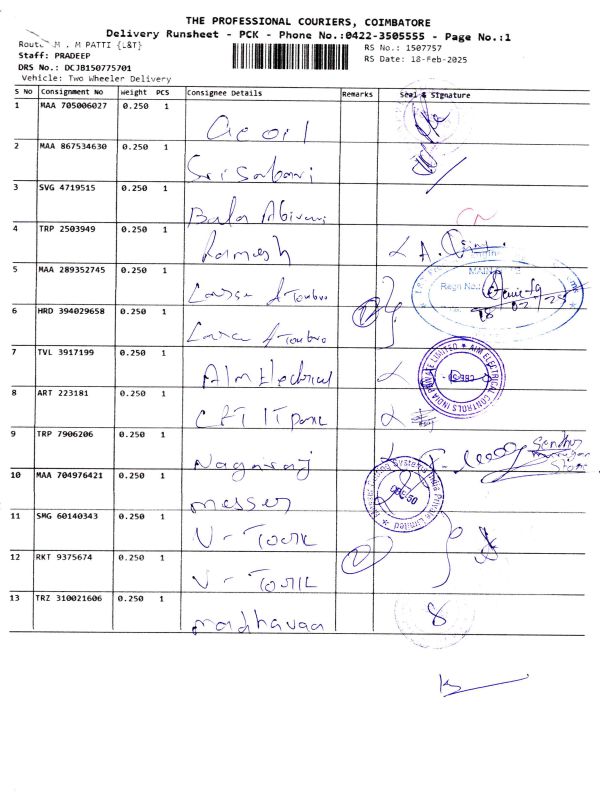 THE PROFESSIONAL COURIERS, COIMBATORE
Delivery Runsheet - PCK - Phone No.:0422-3505555 - Page No.:1
M . M PATTI {L&T}
RS No.: 1507757
Staff: PRADEEP
RS Date: 18-Feb-2025
DRS No.: DCJB150775701
Vehicle: Two Wheeler Delivery
S No Consignment No Weight PCS Consignee Details Remarks Seal & Signature
1 MAA 705006027 0.250 1
2 MAA 867534630 0.250 1 Sri Sabari
3 SVG 4719515 0.250 1 Bala
4 TRP 2503949 0.250 1 Ramesh
5 MAA 289352745 0.250 1 Larsen & Toubro
Regn No.:
18
6 HRD 394029658 0.250 1 Larsen & Toubro
2
7 TVL 3917199 0.250 1 AIM Electrical
AIM ELECTRICAL CONTROLS INDIA PRIVATE LIMITED
8 ART 223181 0.250 1
9 TRP 7906206 0.250 1 Nagaraj
Store
10 MAA 704976421 0.250 1 messer
Private Limited
11 SMG 60140343 0.250 1 V-
12 RKT 9375674 0.250 1 V-
2
13 TRZ 310021606 0.250 1 madhavan